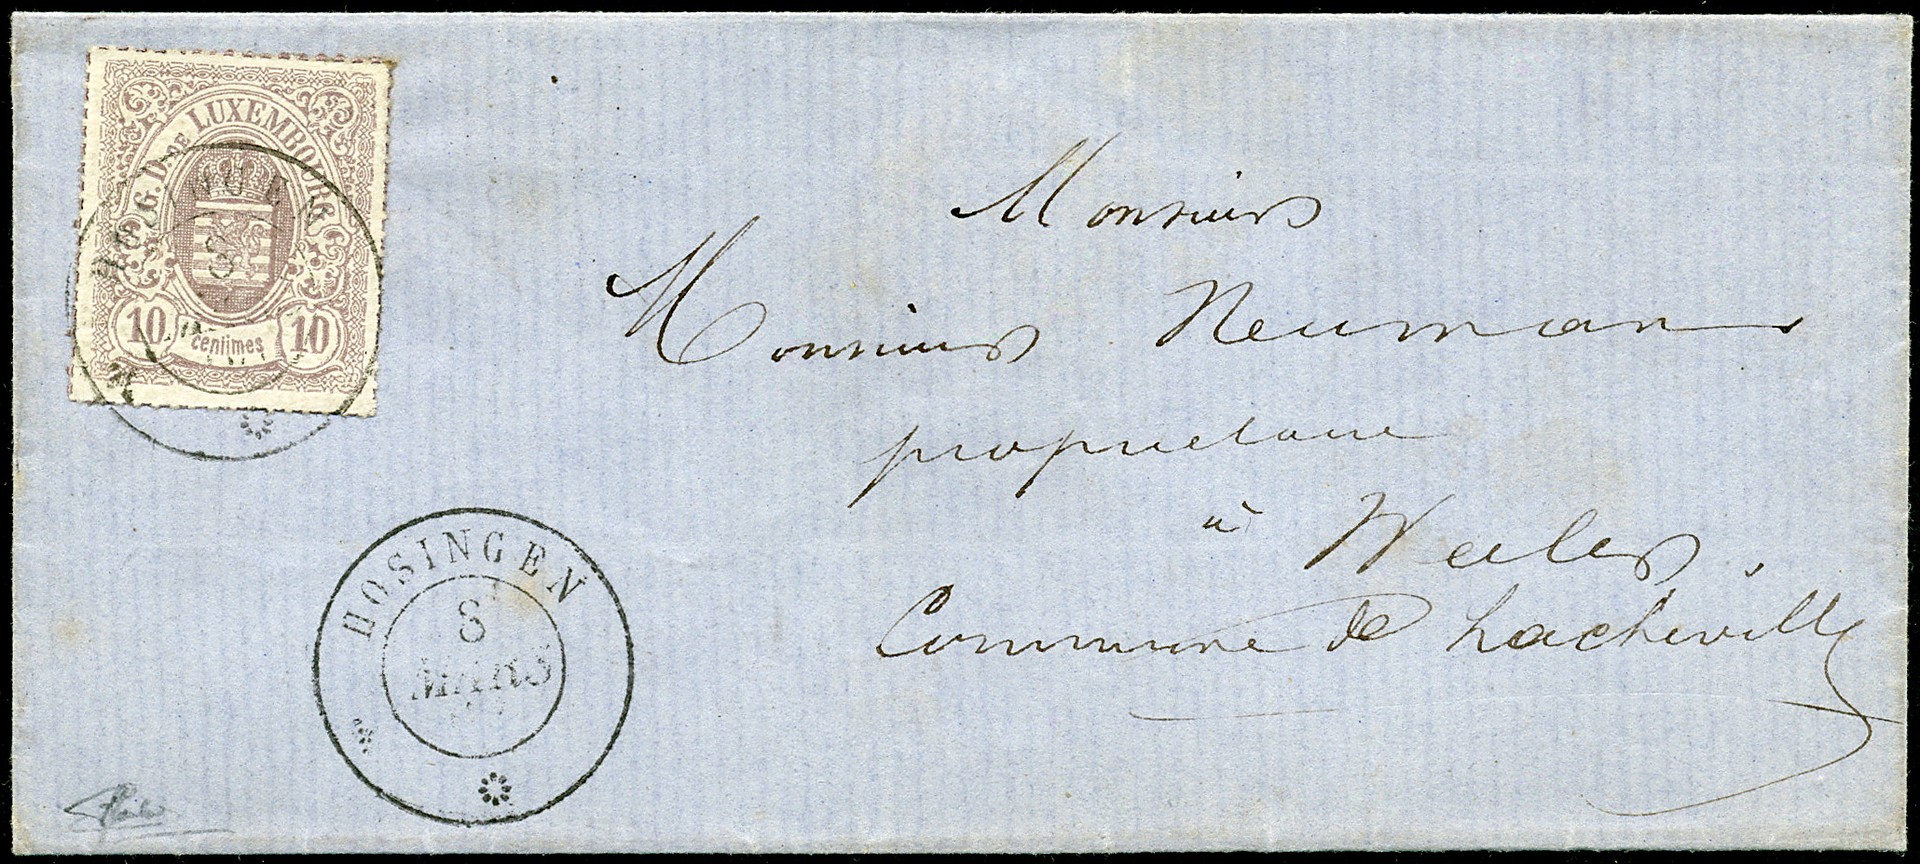 G. D. DE LUXEMBOURG
10 centimes 10
Monsieur
Monsieur Neuman
propriétaire
à Weiler
Commune de Hacheville
HOSINGEN
8
MARS